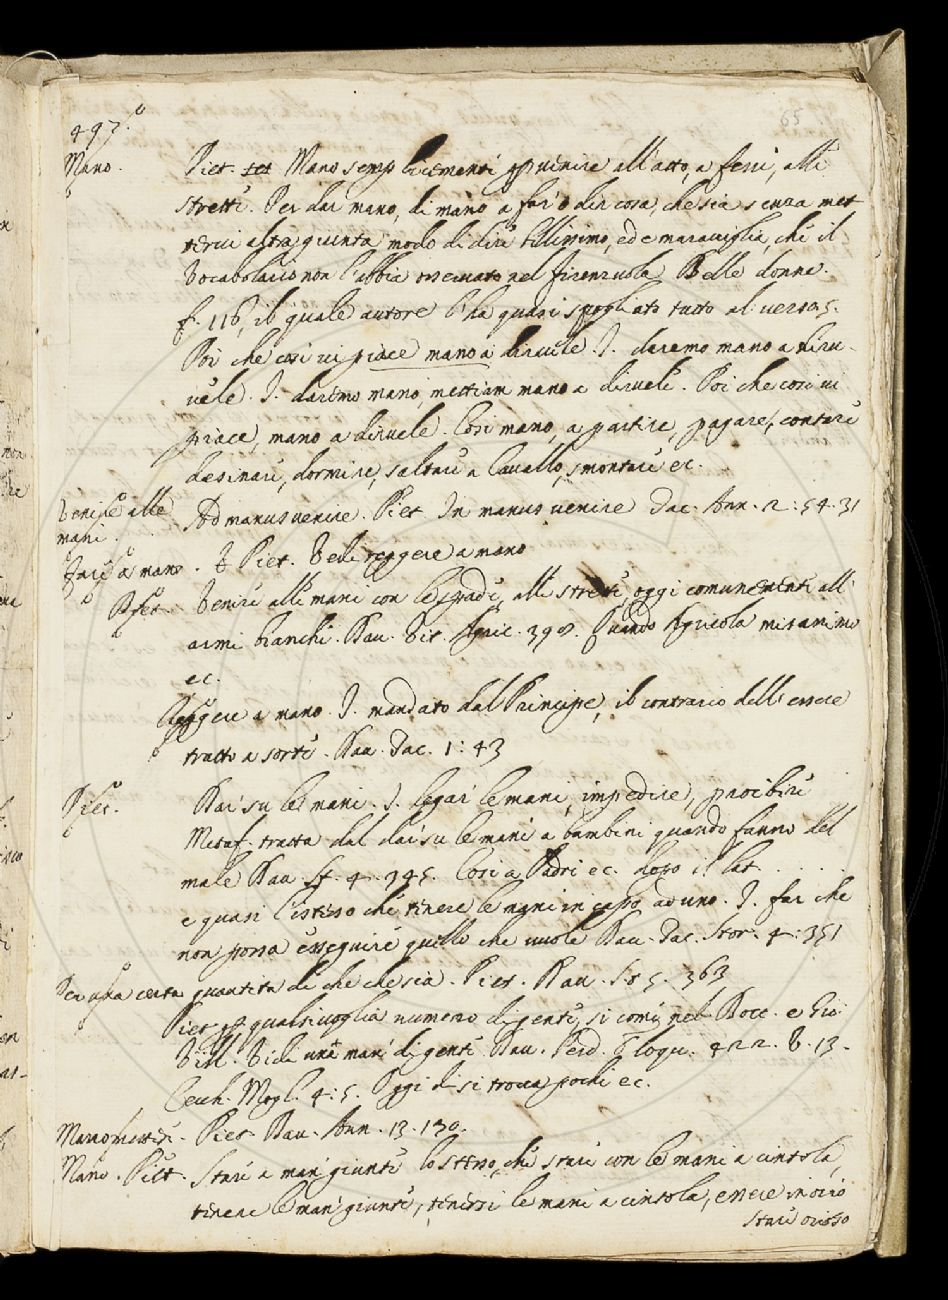 65
497.a
Mano. Piet. Mano semplicementi per venire all'atto, a ferri, alli
stretti. Per dar mano, di mano a far o dir cosa, che sia senza met
tervi altra giunta modo di dire bellissimo, ed e maraviglia, che il
Vocabolario non l'abbia osservato nel Firenzuola Belle donne.
f. 116, il quale autore l'ha quasi spogliato tutto al verso 5.
Poi che cosi vi piace mano a dirvele. I. daremo mano a dirve-
vele. I. daremo mano, mettiam mano a dirvele. Poi che cosi vi
piace, mano a dirvele. Cosi mano, a partire, pagare, contare
desinare, dormire, saltare a Cavallo, smontare ec.
Venire alle mani. Ad manus venire. Piet. In manus venire Tac. Ann. 2: 54. 31
Fare a mano. Piet. Vedi reggere a mano
Piet. Venire alle mani con le spade, alle strette, oggi comunementi all'
armi bianchi. Dav. Vit. Agric. 398. Quando Agricola
ec.
Reggere a mano. I. mandato dal Principe, il contrario dell'essere
tratto a sorte. Dav. Tac. 1: 43
Piet. Dar su le mani. I. legar le mani, impedire, proibire
Metaf. tratta dal dar su le mani a bambini quando fanno del
male Dav. St. 4. 345. Cosi a Padri ec. dopo il lat.....
e quasi l'istesso che tenere le mani in capo ad uno. I. far che
non possa esseguire quello che vuole Dav. Tac. Stor. 4: 351
Per una certa quantita di che che sia. Piet. Dav. St 5. 363
Piet. per qualsivoglia numero di genti, si come nel Bocc. e Gio.
Vill. Vide una man di genti. Dav. Perd. Eloqu. 422. V. 13.
Cecch. Mogl. 4: 5. Oggi di si trova pochi ec.
Manomettere. Piet. Dav. Ann. 13. 170.
Mano. Piet. Stare a man giunte lo stesso, che stare con le mani a cintola,
tenere le man giunte, tenersi le mani a cintola, essere in ozio
stare ozioso